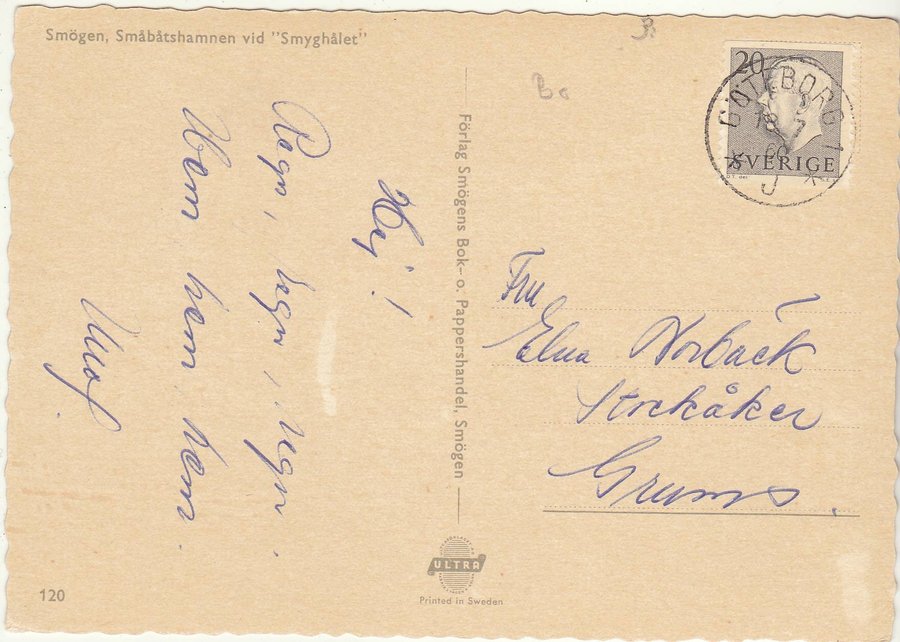 Smögen, Småbåtshamnen vid "Smyghålet"
Hej!
Regn, regn, regn.
Hem hem hem.
Förlag Smögens Bok- o. Pappershandel, Smögen
20
GÖTEBORG 1
SVERIGE
J
Fru
Elna Norbäck
Stockåker
Grums.
ULTRA
Printed in Sweden
120